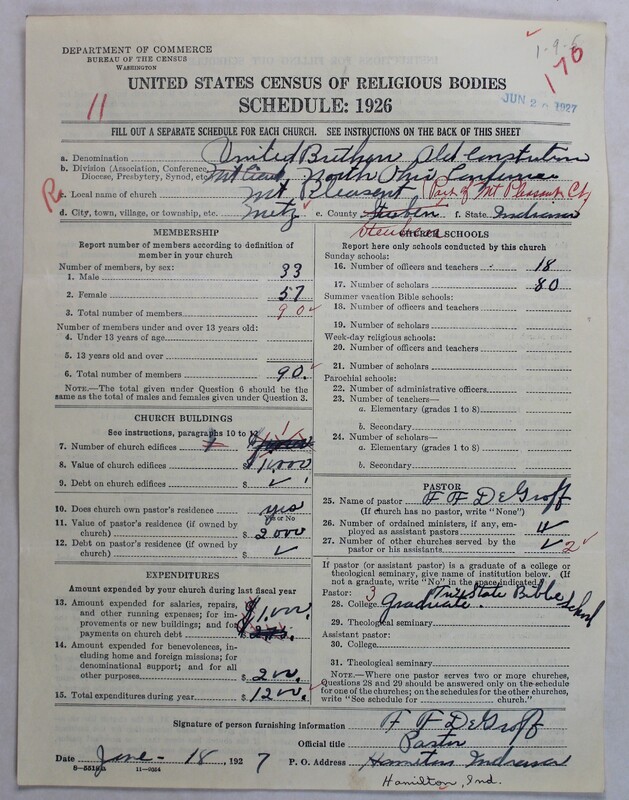 DEPARTMENT OF COMMERCE
BUREAU OF THE CENSUS
WASHINGTON
1-9-
170
JUN 2 1927
UNITED STATES CENSUS OF RELIGIOUS BODIES
SCHEDULE: 1926
11
FILL OUT A SEPARATE SCHEDULE FOR EACH CHURCH. SEE INSTRUCTIONS ON THE BACK OF THIS SHEET
a. Denomination United Old Constitution
b. Division (Association, Conference, Diocese, Presbytery, Synod, etc.) North Ohio Conference
c. Local name of church Mt Pleasant (Part of Mt Pleasant
d. City, town, village, or township, etc. Metz e. County Steuben f. State Indiana
Steuben
MEMBERSHIP
Report number of members according to definition of member in your church
Number of members, by sex:
1. Male 33
2. Female 57
3. Total number of members 90
Number of members under and over 13 years old:
4. Under 13 years of age
5. 13 years old and over
6. Total number of members 90.
NOTE.—The total given under Question 6 should be the same as the total of males and females given under Question 3.
CHURCH BUILDINGS
See instructions, paragraphs 10 to 12
7. Number of church edifices 1
8. Value of church edifices $1,000
9. Debt on church edifices $ ✓
10. Does church own pastor's residence yes
Yes or No
11. Value of pastor's residence (if owned by church) $2000
12. Debt on pastor's residence (if owned by church) $ ✓
EXPENDITURES
Amount expended by your church during last fiscal year
13. Amount expended for salaries, repairs, and other running expenses; for improvements or new buildings; and for payments on church debt $1,000
14. Amount expended for benevolences, including home and foreign missions; for denominational support; and for all other purposes $200.
15. Total expenditures during year $1200.
CHURCH SCHOOLS
Report here only schools conducted by this church
Sunday schools:
16. Number of officers and teachers 18
17. Number of scholars 80
Summer vacation Bible schools:
18. Number of officers and teachers
19. Number of scholars
Week-day religious schools:
20. Number of officers and teachers
21. Number of scholars
Parochial schools:
22. Number of administrative officers
23. Number of teachers—
a. Elementary (grades 1 to 8)
b. Secondary
24. Number of scholars—
a. Elementary (grades 1 to 8)
b. Secondary
PASTOR
25. Name of pastor F F DeGroff
(If church has no pastor, write "None")
26. Number of ordained ministers, if any, employed as assistant pastors
27. Number of other churches served by the pastor or his assistants ✓ 2
If pastor (or assistant pastor) is a graduate of a college or theological seminary, give name of institution below. (If not a graduate, write "No" in the space indicated.)
Pastor: 3 Tri State Bible School
28. College graduate.
29. Theological seminary
Assistant pastor:
30. College
31. Theological seminary
NOTE.—Where one pastor serves two or more churches, Questions 28 and 29 should be answered only on the schedule for one of the churches; on the schedules for the other churches, write "See schedule for church."
Signature of person furnishing information F F DeGroff
Official title Pastor
Date June - 18, 1927 P. O. Address Hamilton Indiana
11—0054
Hamilton, Ind.